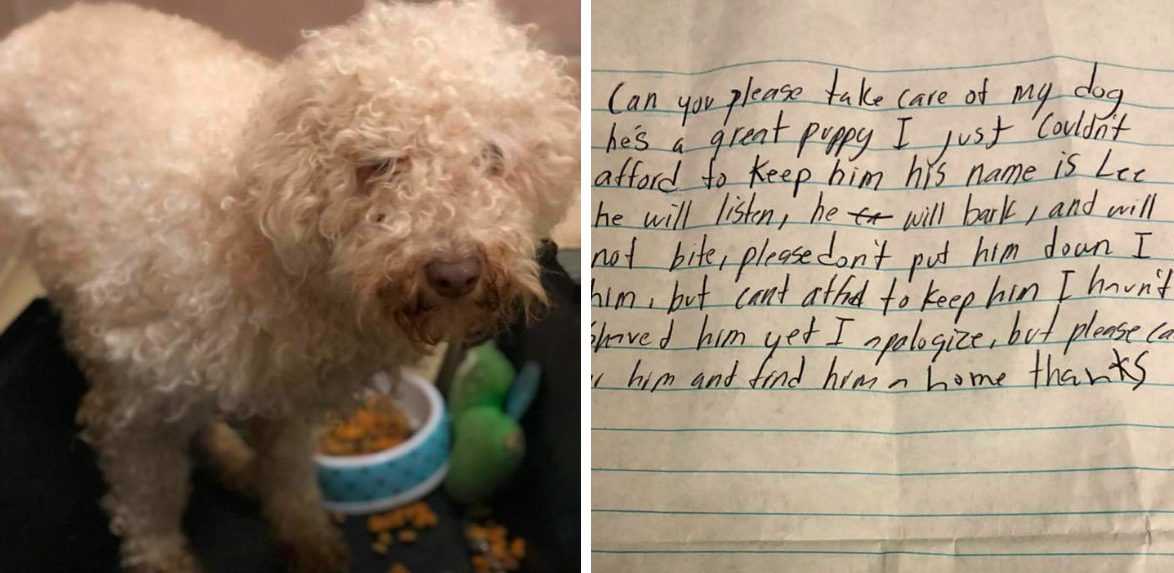 Can you please take care of my dog
he's a great puppy I just Couldn't
afford to keep him his name is Lee
he will listen, he will bark, and will
not bite, please don't put him down I
him, but cant afford to keep him I havn't
Shaved him yet I apologize, but please ca
him and find him a home thanks